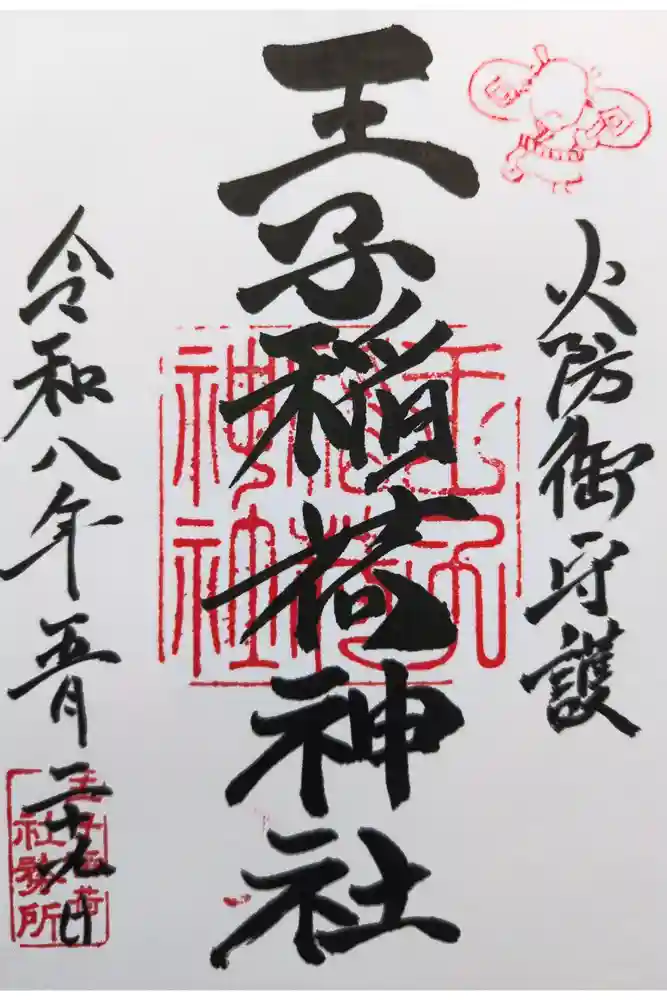 火防御守護
王子稲荷神社
王子
稲荷
神社
令和八年五月二十九日
王子稲荷
社務所